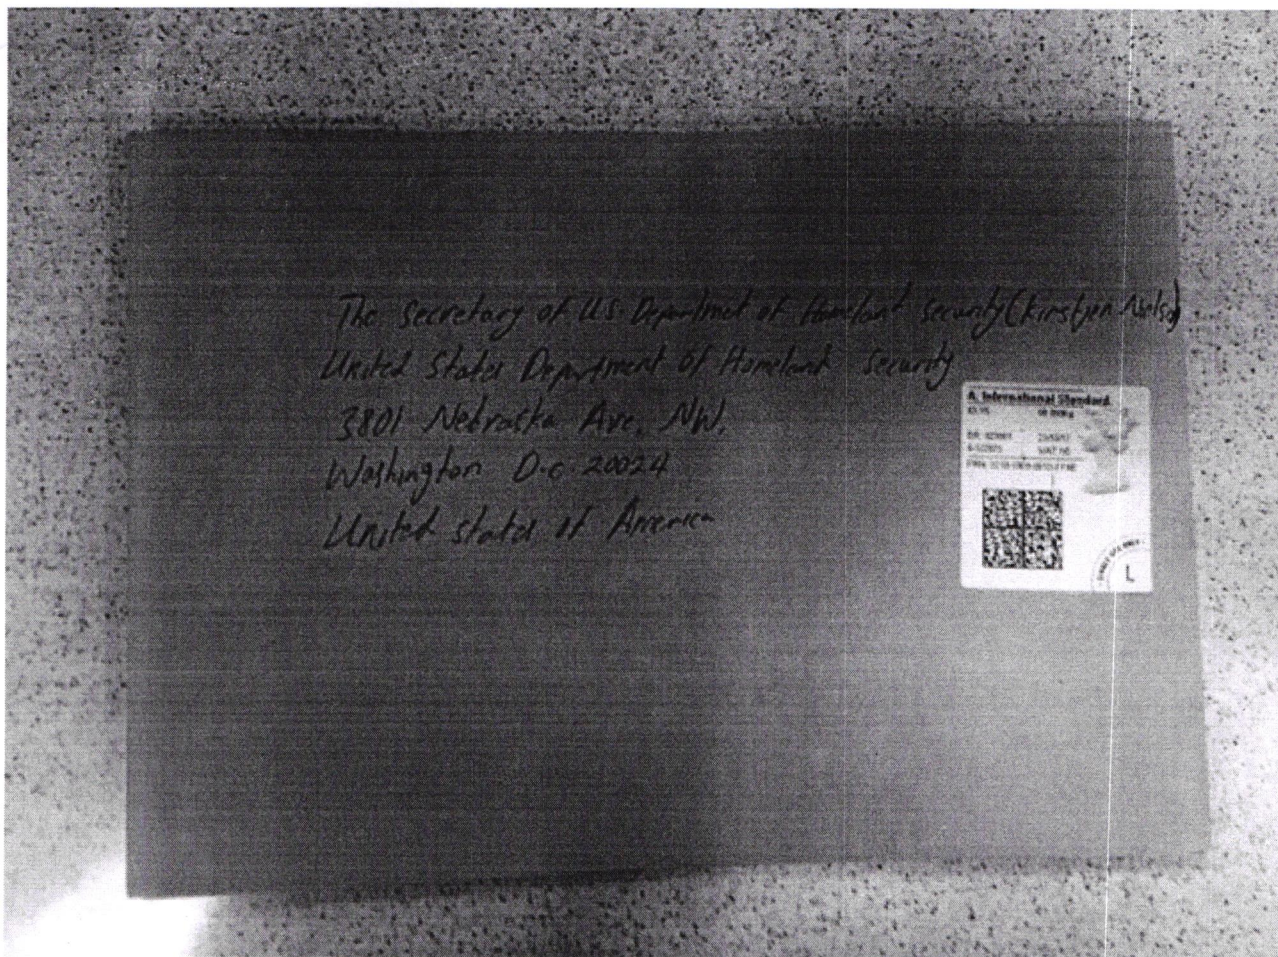 The secretary of U.S. Department of Homeland security (Kirstjen Nielsen)
United States Department of Homeland security
3801 Nebraska Ave, NW,
Washington D.c 20024
United states of America
A. International Standard
L